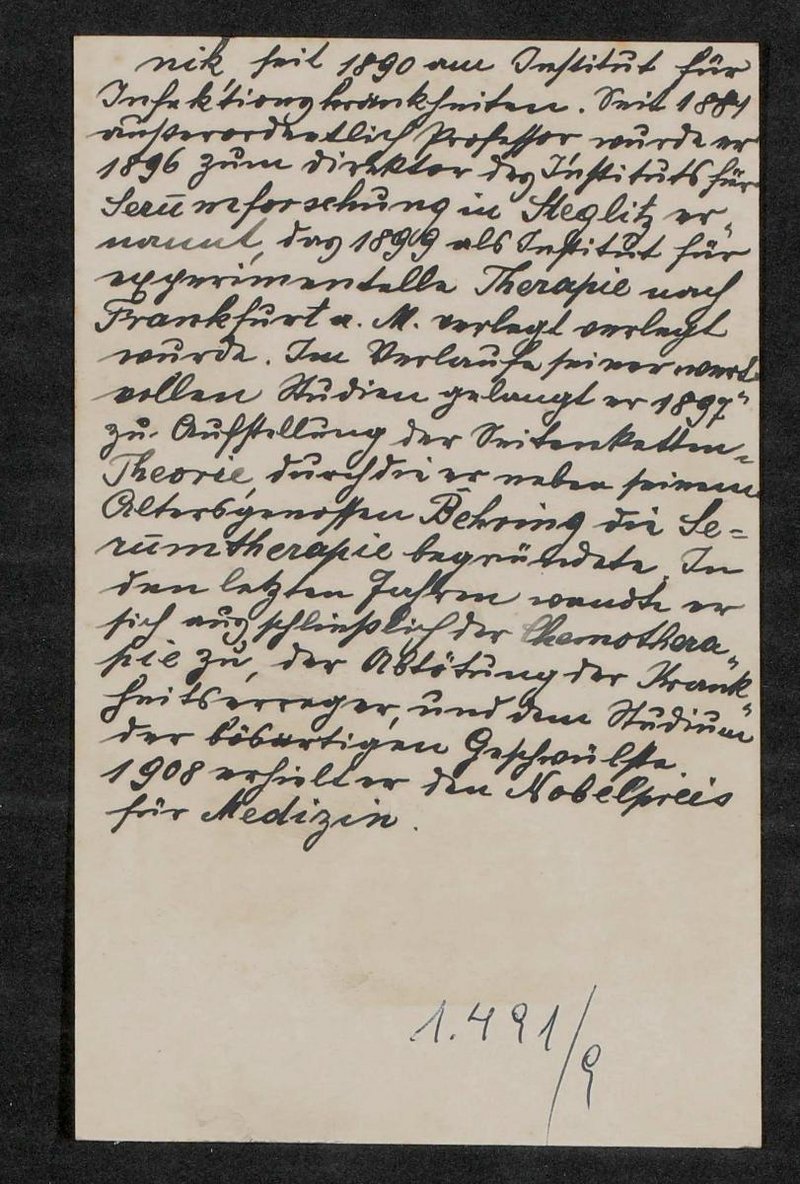 nik, seit 1890 am Institut für
Infektionskrankheiten. Seit 1884
außerordentlich Professor wurde er
1896 zum Direktor des Instituts für
Serumforschung in Steglitz er„
nannt, das 1899 als Institut für
experimentelle Therapie nach
Frankfurt a. M. verlegt verlegt
wurde. Im Verlaufe seiner wert„
vollen Studien gelangt er 1897
zu Aufstellung der Seitenketten=
Theorie, durch die er neben seinem
Altersgenossen Behring die Se=
rumtherapie begründete. In
den letzten Jahren wandte er
sich ausschließlich der Chemothera„
pie zu, der Abtötung der Krank„
heitserreger, und dem Studium
der bösartigen Geschwülste.
1908 erhielt er den Nobelpreis
für Medizin.
1.491/9